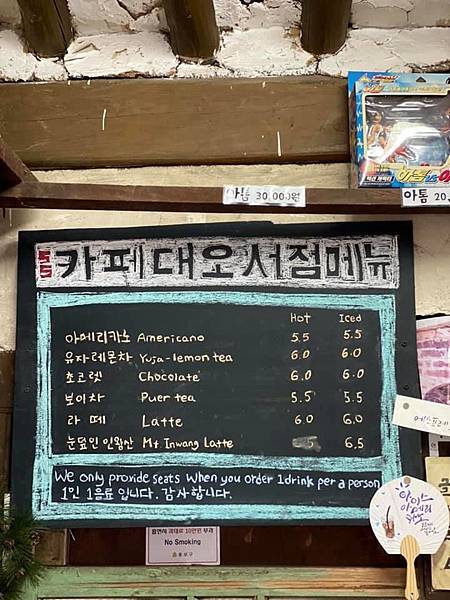 아톰 30,000원
아톰
아톰 20,
카페대오서점메뉴
Hot Iced
아메리카노 Americano 5.5 5.5
유자레몬차 Yuja-lemon tea 6.0 6.0
초코렛 Chocolate 6.0 6.0
보이차 Puer tea 5.5 5.5
라떼 Latte 6.0 6.0
눈덮인 인왕산 Mt. Inwang Latte 6.5
We only provide seats when you order 1 drink per a person
1인 1음료 입니다. 감사합니다.
아이스
아메리
카노
No Smoking
종로구